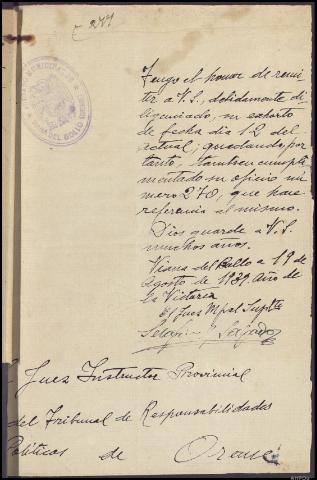 E 277
Tengo el honor de remi-
tir a V.S., debidamente di-
ligenciado, su exhorto
de fecha día 12 del
actual; quedando, por
tanto, tambien cumpli-
mentado su oficio nú-
mero 270, que hace
referencia al mismo.
Dios guarde a V.S.
muchos años.
Viana del Bollo a 19 de
agosto de 1939. Año de
la Victoria
El Juez Mpal Suplte
Juez Instructor Provincial
del Tribunal de Responsabilidades
Políticas de Orense